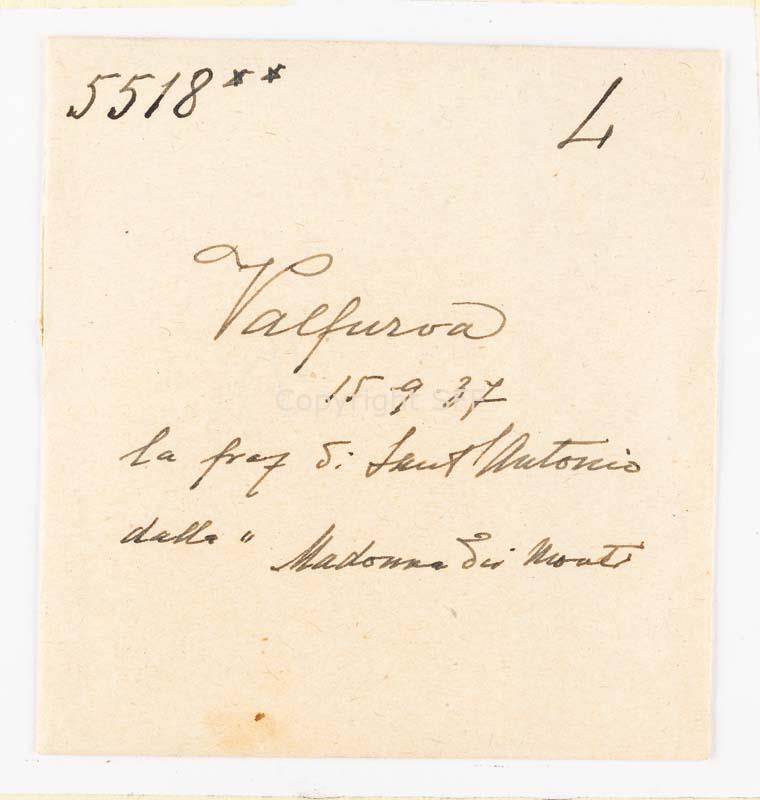 5518** L
Valfurva
15 9 37
Copyright SPB
la fraz di Sant'Antonio
dalla " Madonna dei Monti